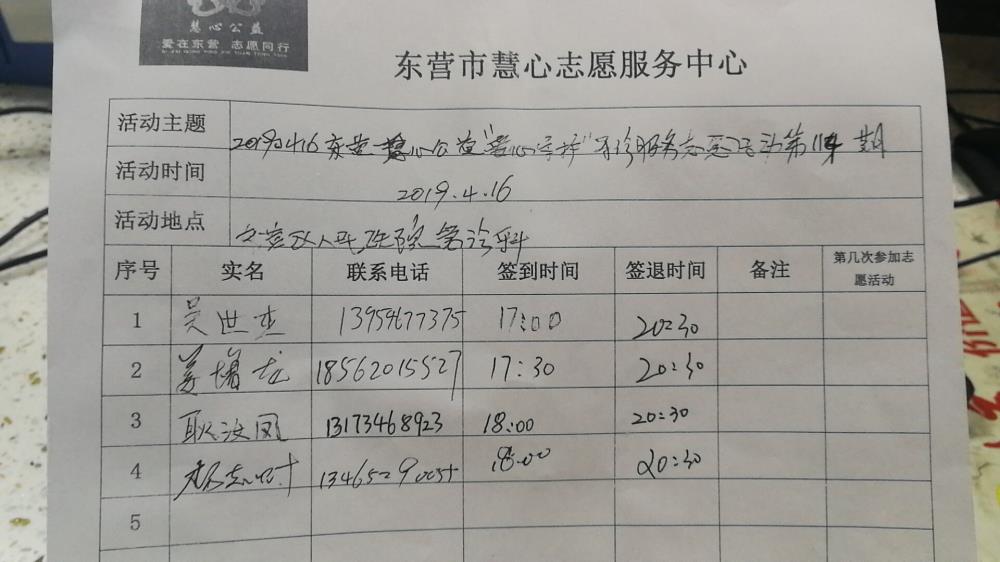 慧心公益
爱在东营 志愿同行
东营市慧心志愿服务中心
活动主题 20190416东营慧心公益"慧心导诊"导诊服务志愿活动第 期
活动时间 2019.4.16
活动地点 人民医院急诊科
序号 实名 联系电话 签到时间 签退时间 备注 第几次参加志愿活动
1 吴世杰 13954677375 17:00 20:30
2 姜增龙 18562015527 17:30 20:30
3 耿汝凤 13173468923 18:00 20:30
4 18:00 20:30
5